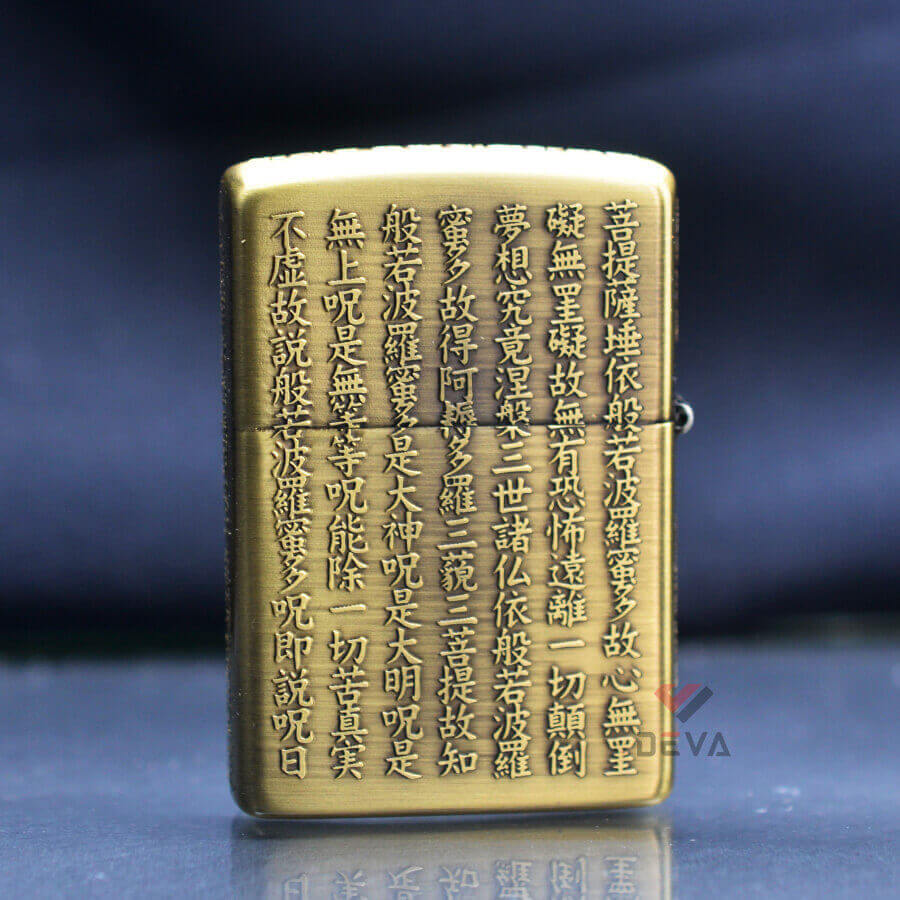 菩提薩埵依般若波羅蜜多故心無罣
礙無罣礙故無有恐怖遠離一切顛倒
夢想究竟涅槃三世諸仏依般若波羅
蜜多故得阿耨多羅三藐三菩提故知
般若波羅蜜多是大神呪是大明呪是
無上呪是無等等呪能除一切苦真実
不虚故説般若波羅蜜多呪即説呪日
DEVA